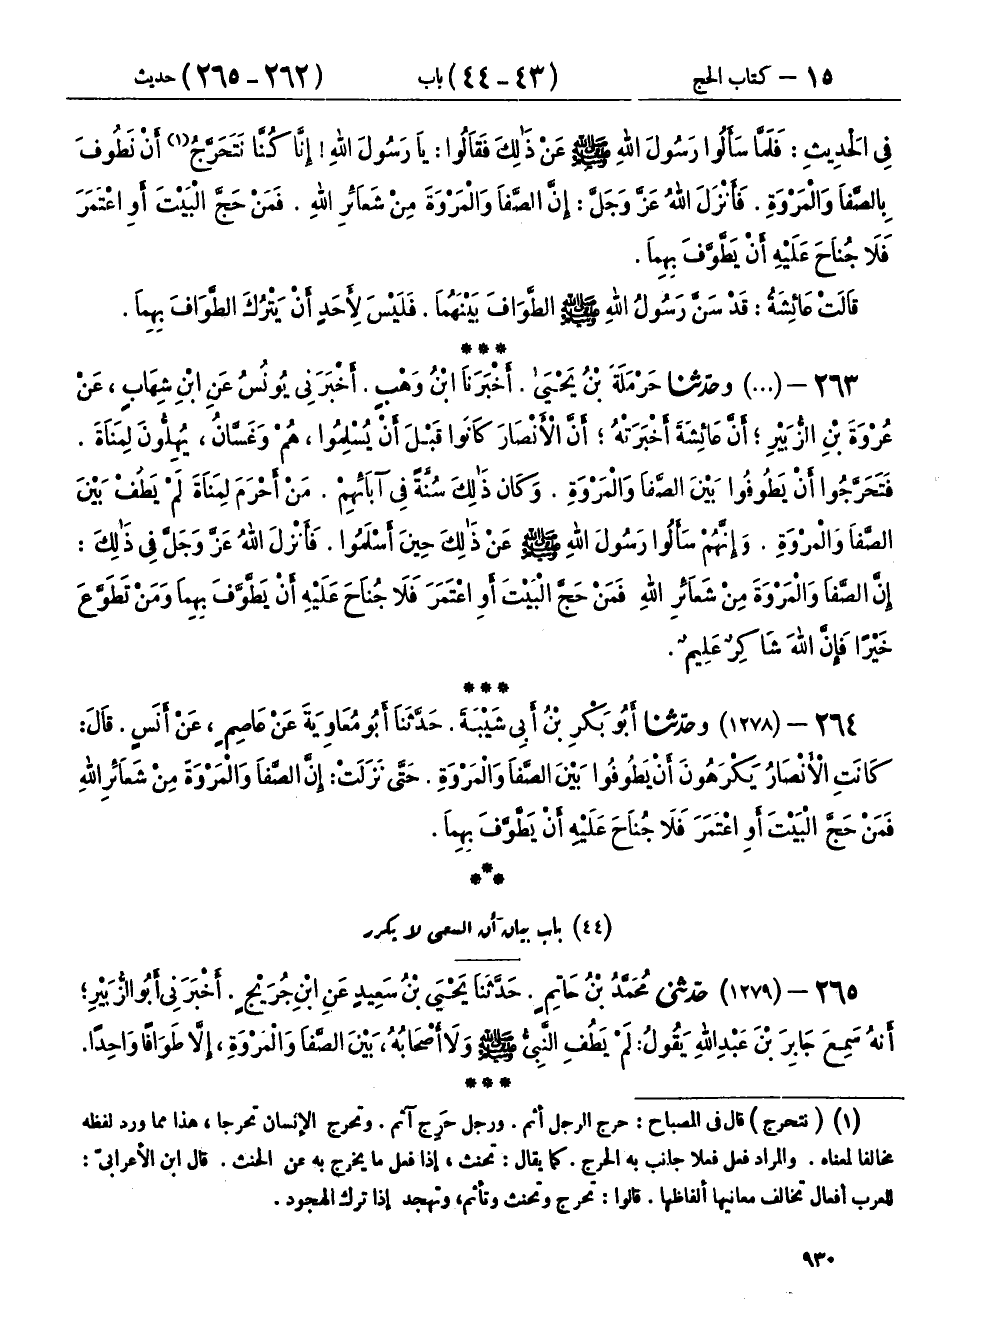 ١٥ – كتاب الحج (٤٣ – ٤٤) باب (٢٦٢ – ٢٦٥) حديث
فِي الْحَدِيثِ : فَلَمَّا سَأَلُوا رَسُولَ اللهِ ﷺ عَنْ ذَٰلِكَ فَقَالُوا : يَا رَسُولَ اللهِ ! إِنَّا كُنَّا نَتَحَرَّجُ(١) أَنْ نَطُوفَ
بِالصَّفَا وَالْمَرْوَةِ . فَأَنْزَلَ اللهُ عَزَّ وَجَلَّ : إِنَّ الصَّفَا وَالْمَرْوَةَ مِنْ شَعَائِرِ اللهِ . فَمَنْ حَجَّ الْبَيْتَ أَوِ اعْتَمَرَ
فَلَا جُنَاحَ عَلَيْهِ أَنْ يَطَّوَّفَ بِهِمَا .
قَالَتْ عَائِشَةُ : قَدْ سَنَّ رَسُولُ اللهِ ﷺ الطَّوَافَ بَيْنَهُمَا . فَلَيْسَ لِأَحَدٍ أَنْ يَتْرُكَ الطَّوَافَ بِهِمَا .
***
٢٦٣ – (...) وحدّثنا حَرْمَلَةُ بْنُ يَحْيَىٰ . أَخْبَرَنَا ابْنُ وَهْبٍ . أَخْبَرَنِي يُونُسُ عَنِ ابْنِ شِهَابٍ ، عَنْ
عُرْوَةَ بْنِ الزُّبَيْرِ ؛ أَنَّ عَائِشَةَ أَخْبَرَتْهُ ؛ أَنَّ الْأَنْصَارَ كَانُوا قَبْلَ أَنْ يُسْلِمُوا ، هُمْ وَغَسَّانُ ، يُهِلُّونَ لِمَنَاةَ .
فَتَحَرَّجُوا أَنْ يَطُوفُوا بَيْنَ الصَّفَا وَالْمَرْوَةِ . وَكَانَ ذَٰلِكَ سُنَّةً فِي آبَائِهِمْ . مَنْ أَحْرَمَ لِمَنَاةَ لَمْ يَطُفْ بَيْنَ
الصَّفَا وَالْمَرْوَةِ . وَإِنَّهُمْ سَأَلُوا رَسُولَ اللهِ ﷺ عَنْ ذَٰلِكَ حِينَ أَسْلَمُوا . فَأَنْزَلَ اللهُ عَزَّ وَجَلَّ فِي ذَٰلِكَ :
إِنَّ الصَّفَا وَالْمَرْوَةَ مِنْ شَعَائِرِ اللهِ فَمَنْ حَجَّ الْبَيْتَ أَوِ اعْتَمَرَ فَلَا جُنَاحَ عَلَيْهِ أَنْ يَطَّوَّفَ بِهِمَا وَمَنْ تَطَوَّعَ
خَيْرًا فَإِنَّ اللهَ شَاكِرٌ عَلِيمٌ .
***
٢٦٤ – (١٢٧٨) وحدّثنا أَبُو بَكْرِ بْنُ أَبِي شَيْبَةَ . حَدَّثَنَا أَبُو مُعَاوِيَةَ عَنْ عَاصِمٍ ، عَنْ أَنَسٍ . قَالَ :
كَانَتِ الْأَنْصَارُ يَكْرَهُونَ أَنْ يَطُوفُوا بَيْنَ الصَّفَا وَالْمَرْوَةِ . حَتَّى نَزَلَتْ : إِنَّ الصَّفَا وَالْمَرْوَةَ مِنْ شَعَائِرِ اللهِ
فَمَنْ حَجَّ الْبَيْتَ أَوِ اعْتَمَرَ فَلَا جُنَاحَ عَلَيْهِ أَنْ يَطَّوَّفَ بِهِمَا .
***
(٤٤) باب بيان أن السعي لا يكرر
٢٦٥ – (١٢٧٩) حدّثني مُحَمَّدُ بْنُ حَاتِمٍ . حَدَّثَنَا يَحْيَى بْنُ سَعِيدٍ عَنِ ابْنِ جُرَيْجٍ . أَخْبَرَنِي أَبُو الزُّبَيْرِ ؛
أَنَّهُ سَمِعَ جَابِرَ بْنَ عَبْدِ اللهِ يَقُولُ : لَمْ يَطُفِ النَّبِيُّ ﷺ وَلَا أَصْحَابُهُ ، بَيْنَ الصَّفَا وَالْمَرْوَةِ ، إِلَّا طَوَافًا وَاحِدًا .
***
(١) ( نتحرج ) قال في المصباح : حرج الرجل أثم . ورجل حَرِج آثم . وتحرج الإنسان تحرجا ، هذا مما ورد لفظه
مخالفا لمعناه . والمراد فعل فعلا جانب به الحرج . كما يقال : تحنث ، إذا فعل ما يخرج به عن الحنث . قال ابن الأعرابيّ :
للعرب أفعال تخالف معانيها ألفاظها . قالوا : تحرج وتحنث وتأثم، وتهجد إذا ترك الهجود .
٩٣٠